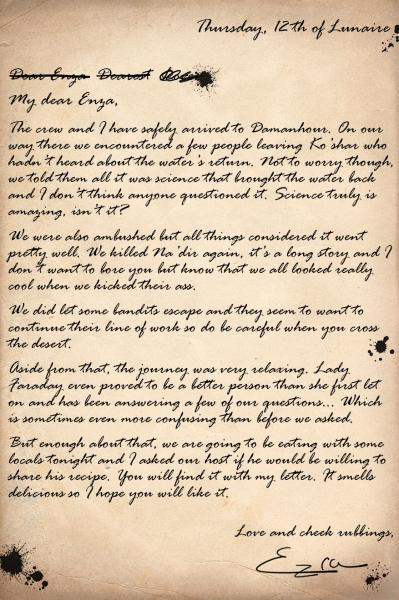 Thursday, 12th of Lunaire
Dear Enza Dearest
My dear Enza,
The crew and I have safely arrived to Damanhour. On our
way there we encountered a few people leaving Ko'shar who
hadn't heard about the water's return. Not to worry though,
we told them all it was science that brought the water back
and I don't think anyone questioned it. Science truly is
amazing, isn't it?
We were also ambushed but all things considered it went
pretty well. We killed Na'dir again, it's a long story and I
don't want to bore you but know that we all looked really
cool when we kicked their ass.
We did let some bandits escape and they seem to want to
continue their line of work so do be careful when you cross
the desert.
Aside from that, the journey was very relaxing. Lady
Faraday even proved to be a better person than she first let
on and has been answering a few of our questions... Which
is sometimes even more confusing than before we asked.
But enough about that, we are going to be eating with some
locals tonight and I asked our host if he would be willing to
share his recipe. You will find it with my letter. It smells
delicious so I hope you will like it.
Love and cheek rubbings,
Ezra